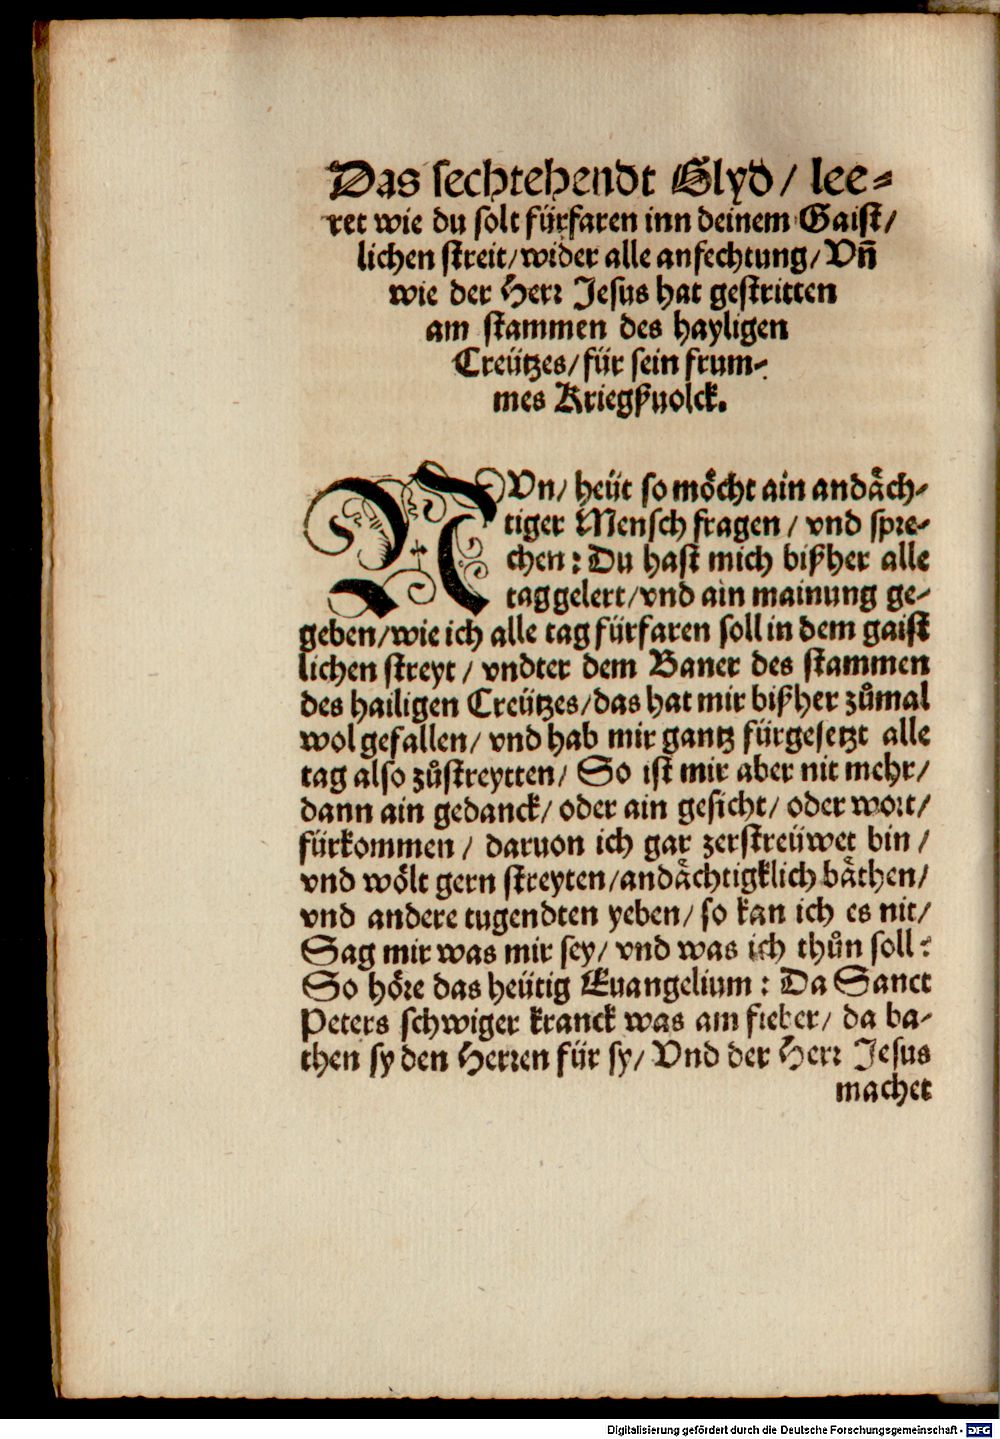 Das sechtehendt Glyd/ lee-
ret wie du solt fürfaren inn deinem Gaist/
lichen streit/wider alle anfechtung/ Vñ
wie der Herr Jesus hat gestritten
am stammen des hayligen
Creützes/für sein frum-
mes Kriegßuolck.
NUn/ heüt so möcht ain andåch-
tiger Mensch fragen/ vnd spre-
chen: Du hast mich bißher alle
tag gelert/vnd ain mainung ge-
geben/wie ich alle tag fürfaren soll in dem gaist
lichen streyt/ vndter dem Baner des stammen
des hailigen Creützes/das hat mir bißher zůmal
wol gefallen/ vnd hab mir gantz fürgesetzt alle
tag also zůstreytten/ So ist mir aber nit mehr/
dann ain gedanck/ oder ain gesicht/ oder wort/
fürkommen/ daruon ich gar zerstreüwet bin/
vnd wölt gern streyten/andåchtigklich båthen/
vnd andere tugendten yeben/ so kan ich es nit/
Sag mir was mir sey/ vnd was ich thůn soll:
So höre das heütig Euangelium: Da Sanct
Peters schwiger kranck was am fieber/ da ba-
then sy den Herren für sy/ Vnd der Herr Jesus
machet
Digitalisierung gefördert durch die Deutsche Forschungsgemeinschaft - DFG